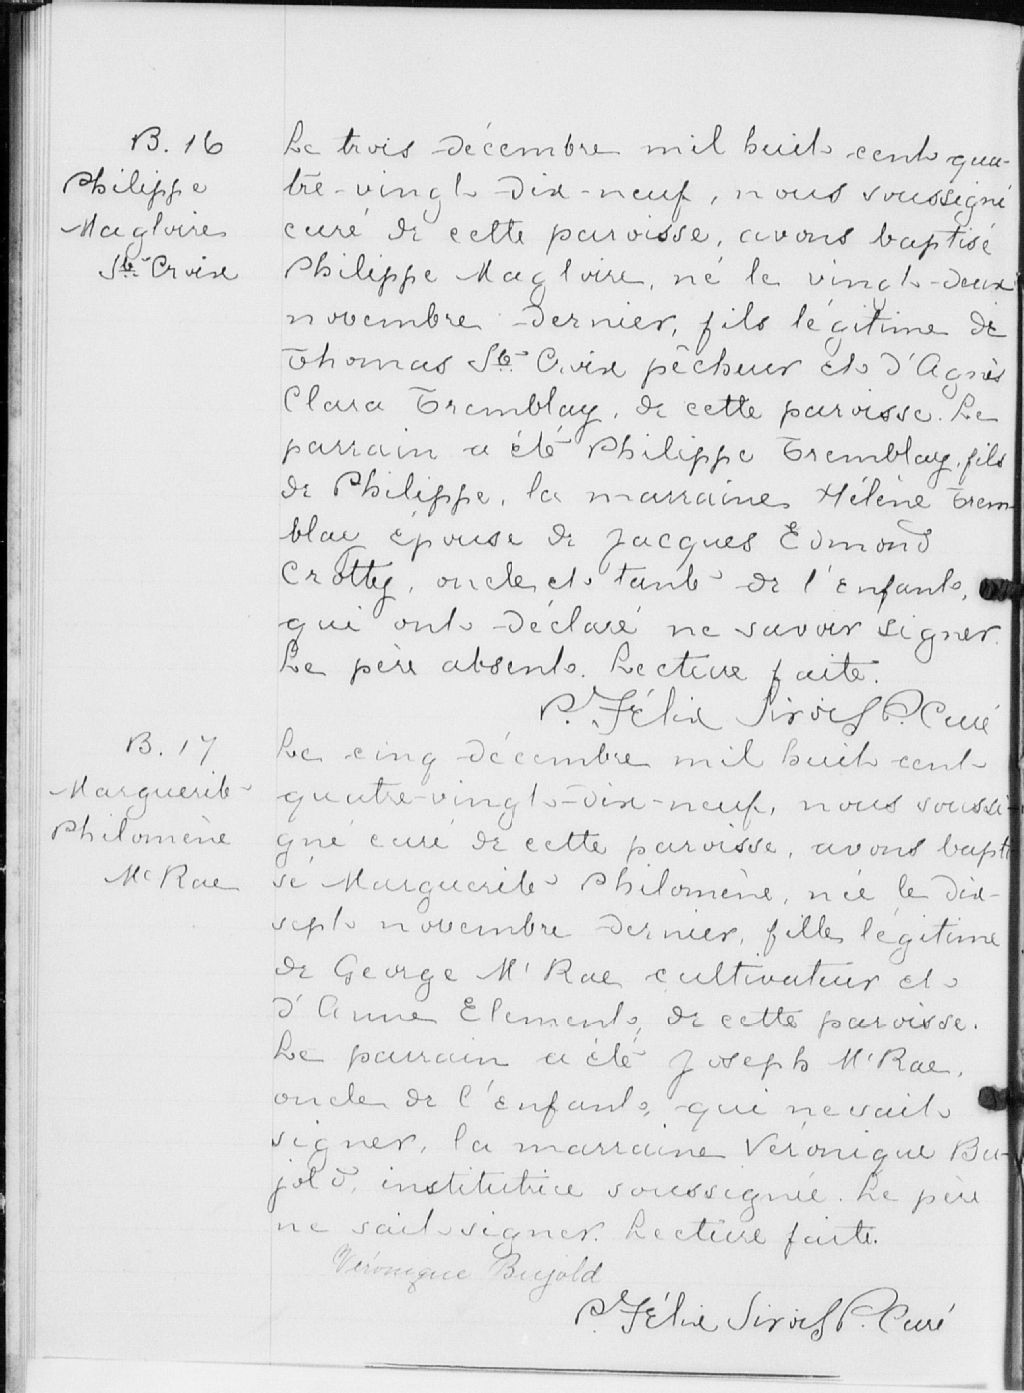 B. 16
Philippe
Magloire
Ste Croix
Le trois décembre mil huit cent qua-
tre-vingt-dix-neuf, nous soussigné
curé de cette paroisse, avons baptisé
Philippe Magloire, né le vingt-deux
novembre dernier, fils légitime de
Thomas Ste Croix pêcheur et d'Agnès
Clara Tremblay, de cette paroisse. Le
parrain a été Philippe Tremblay, fils
de Philippe, la marraine Hélène Trem-
blay épouse de Jacques Edmond
Crotty, oncle et tante de l'enfant,
qui ont déclaré ne savoir signer.
Le père absent. Lecture faite.
P. Félix Sirois P. Curé
B. 17
Marguerite
Philomène
Mc Rae
Le cinq décembre mil huit cent
quatre-vingt-dix-neuf, nous soussi-
gné curé de cette paroisse, avons bapti
sé Marguerite Philomène, née le dix-
sept novembre dernier, fille légitime
de George Mc Rae cultivateur et
d'Anne Element, de cette paroisse.
Le parrain a été Joseph Mc Rae,
oncle de l'enfant, qui ne sait
signer, la marraine Véronique Bu-
jold, institutrice soussignée. Le père
ne sait signer. Lecture faite.
Véronique Bujold
P. Félix Sirois P. Curé